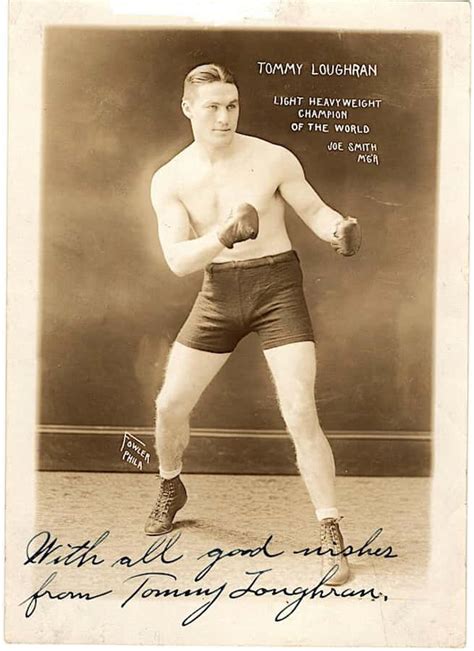 TOMMY LOUGHRAN
LIGHT HEAVYWEIGHT
CHAMPION
OF THE WORLD
JOE SMITH
M'G'R
FOWLER
PHILA
With all good wishes
from Tommy Loughran.